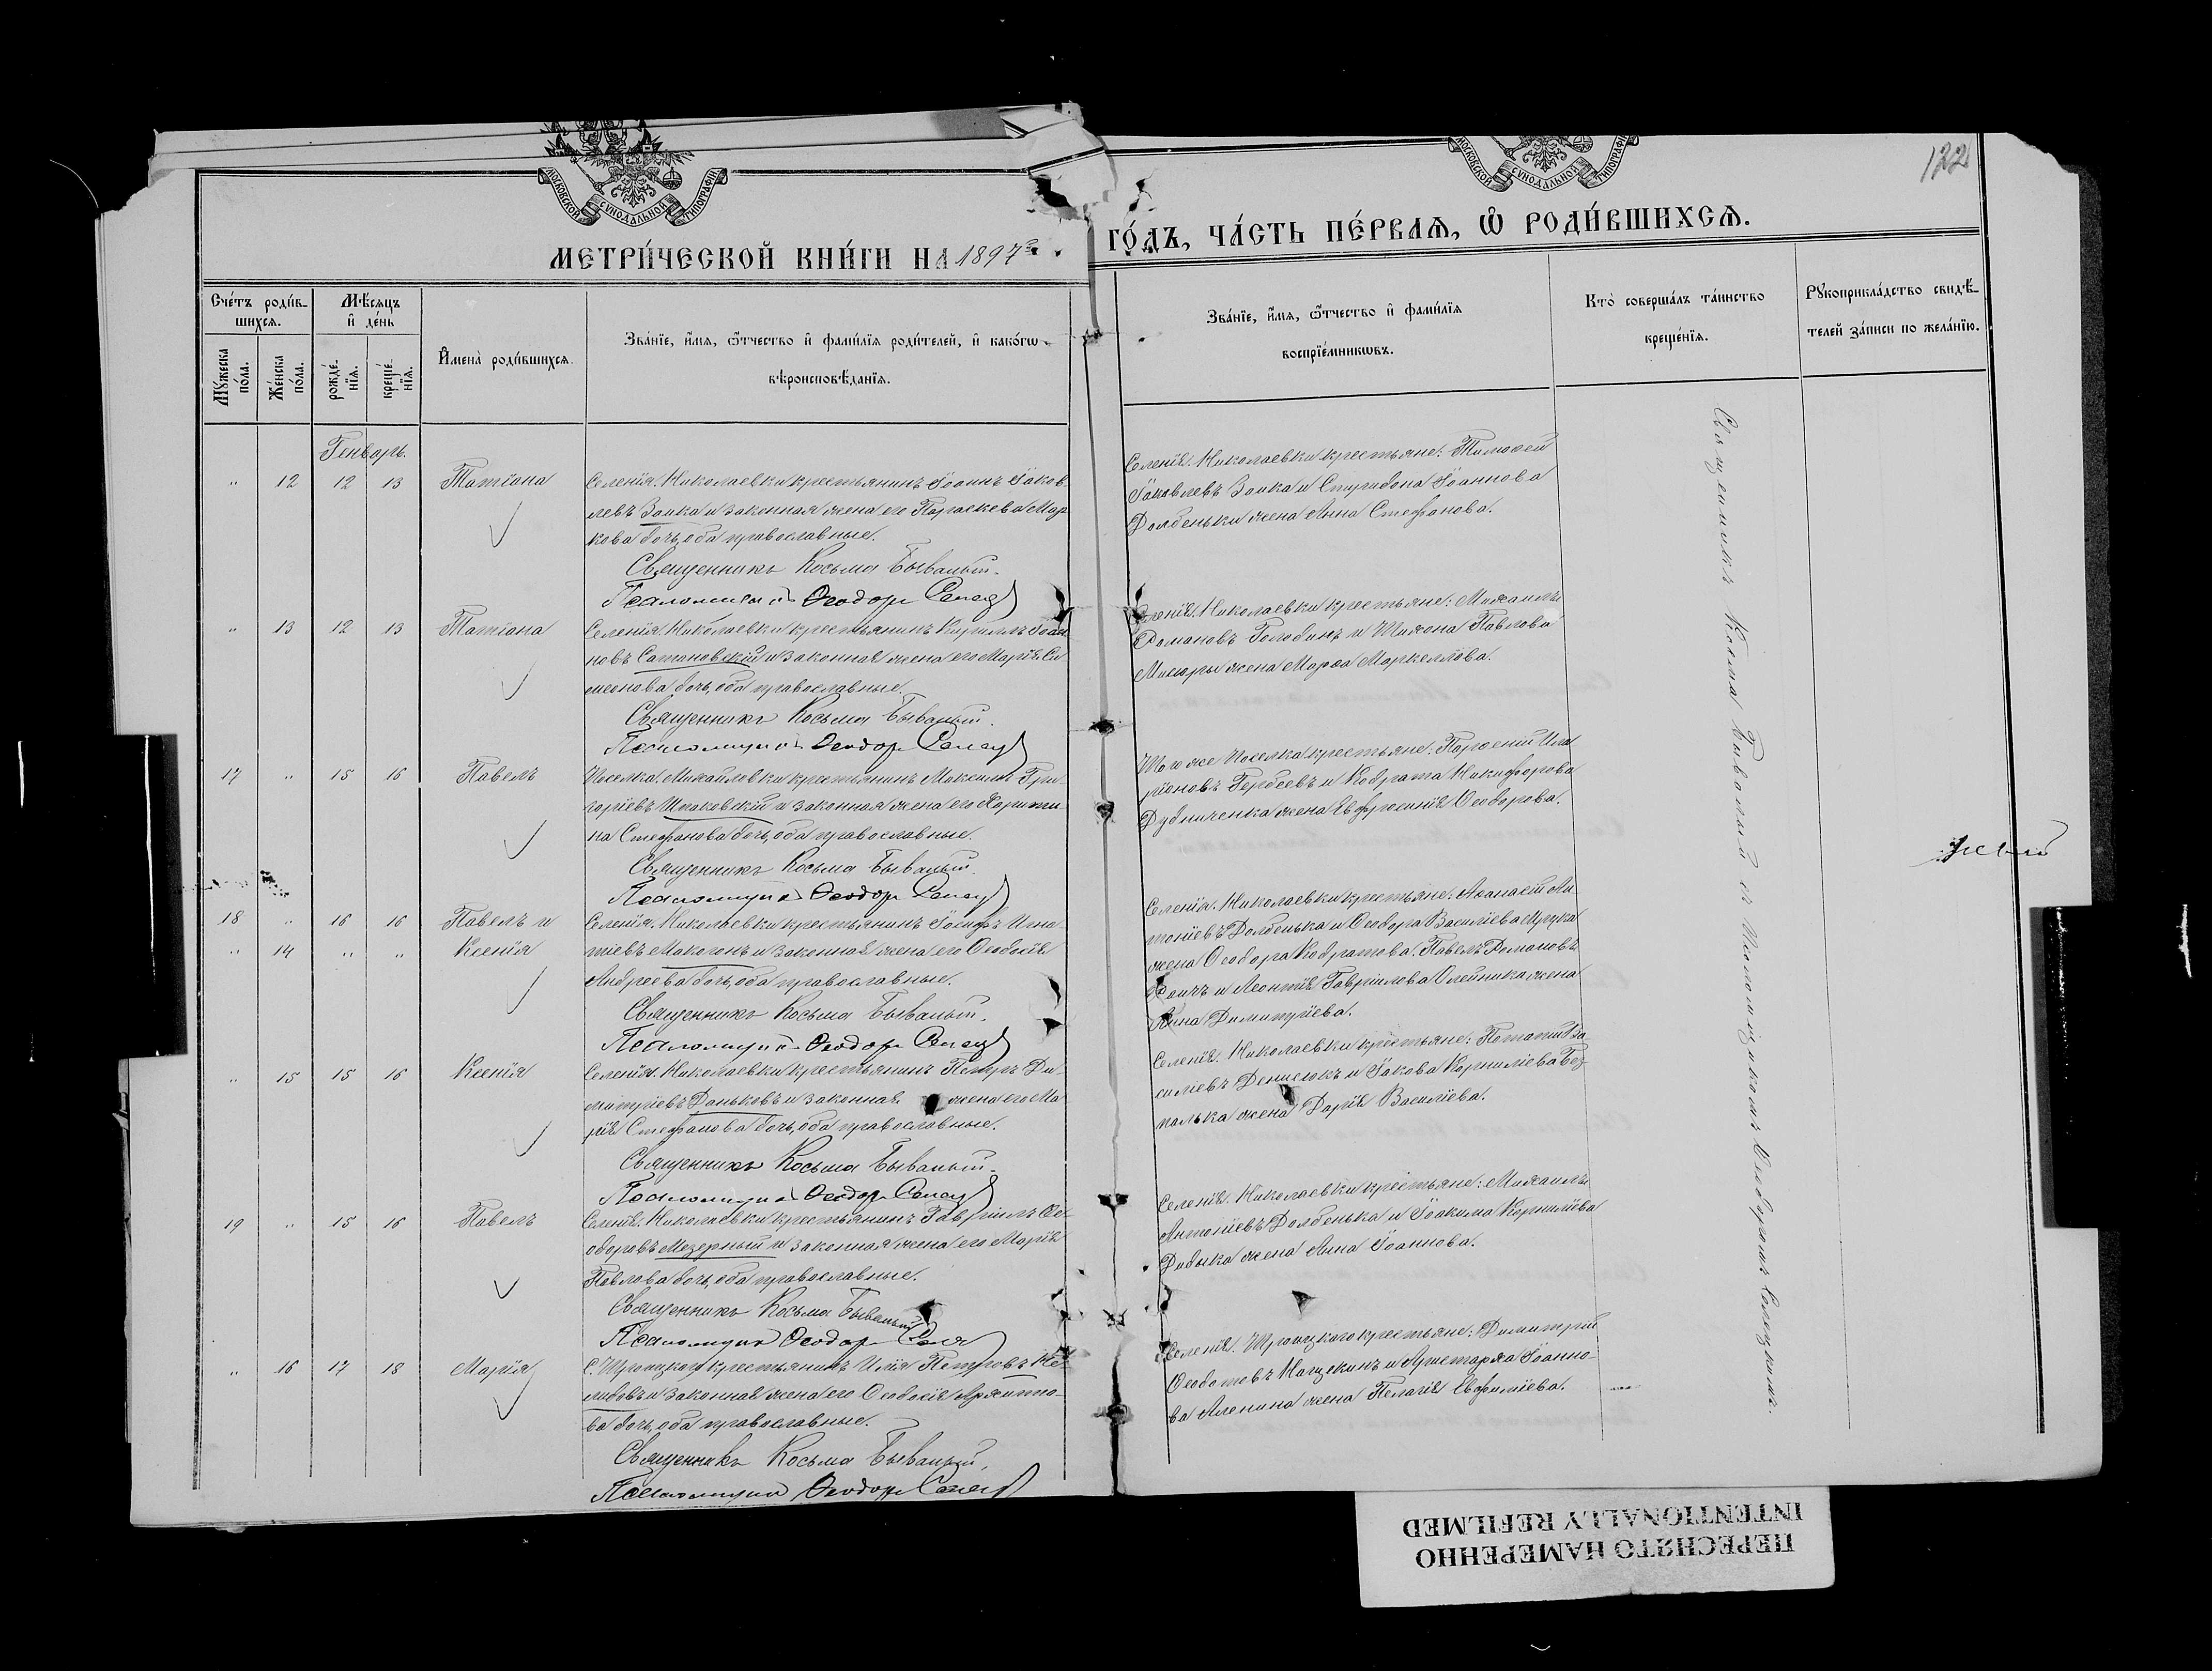 МОСКОВСКОЙ СУНОДАЛЬНОЙ ТИПОГРАФІИ
МОСКОВСКОЙ СУНОДАЛЬНОЙ ТИПОГРАФІИ
122
МЕТРИ́ЧЕСКОЙ КНИ́ГИ НА 1897
ГО́ДЪ, ЧА́СТЬ ПЕ́РВАѦ, Ѡ҆ РОДИ́ВШИХСѦ.
Сче́тъ роди́в-
шихсѧ.
Мꙋ́жеска по́ла.
Же́нска по́ла.
Мѣ́сѧцъ
и҆ де́нь
рожде́-
нїѧ.
креще́-
нїѧ.
И҆мена̀ роди́вшихсѧ.
Зва́нїе, и҆́мѧ, ѻ҆́тчество и҆ фами́лїѧ роди́телей, и҆ како́гѡ
вѣроисповѣ́данїѧ.
Зва́нїе, и҆́мѧ, ѻ҆́тчество и҆ фами́лїѧ
воспрїе́мникѡвъ.
Кто̀ соверша́лъ та́инство
креще́нїѧ.
Рꙋкоприкла́дство свидѣ́-
телей за́писи по жела́нїю.
Генворь.
" 12 12 13 Татіана
Селенія Николаевки крестьянинъ Іоаннъ Іаков-
левъ Заика и законная жена его Параскева Мар-
кова дочь, оба православные.
Священникъ Косьма Бывалый.
Псаломщикъ Ѳеодоръ
Селенія Николаевки крестьяне: Тимоѳей
Іаковлевъ Заика и Спиридона Іоаннова
Долбеньки жена Анна Стефанова.
" 13 12 13 Татіана
Селенія Николаевки крестьянинъ Кириллъ Іоан-
новъ Сатановскій и законная жена его Марія Си-
меонова дочь, оба православные.
Священникъ Косьма Бывалый.
Псаломщикъ Ѳеодоръ
Селенія Николаевки крестьяне: Михаилъ
Романовъ Голобинъ и Тихона Павлова
Мисюры жена Марѳа Маркеллова.
17 " 15 16 Павелъ
Поселка Михайловки крестьянинъ Максимъ Гри-
горіевъ и законная жена его Харити-
на Стефанова дочь, оба православные.
Священникъ Косьма Бывалый.
Псаломщикъ Ѳеодоръ
Того же поселка крестьяне: Парѳеній Ила-
ріоновъ и Кодрата Никифорова
Дубниченка жена Евфросинія Ѳеодорова.
18 " 16 16 Павелъ и
" 14 " " Ксенія
Селенія Николаевки крестьянинъ Іосифъ Игна-
тіевъ Макогонъ и законная жена его Ѳеодосія
Андреева дочь, оба православные.
Священникъ Косьма Бывалый.
Псаломщикъ Ѳеодоръ
Селенія Николаевки крестьяне: Аѳанасій Ан-
тоніевъ Долбенька и Ѳеодора Василіева
жена Ѳеодора Кодратова. Павелъ Романовъ
и Леонтія Гавріилова Олейника жена
Анна Димитріева.
" 15 15 16 Ксенія
Селенія Николаевки крестьянинъ Петръ Ди-
митріевъ Даньковъ и законная жена его Ма-
рія Стефанова дочь, оба православные.
Священникъ Косьма Бывалый.
Псаломщикъ Ѳеодоръ
Селенія Николаевки крестьяне: Потапій Ва-
силіевъ Денисюкъ и Іакова Корниліева Без-
палька жена Дарія Василіева.
19 " 15 16 Павелъ
Селенія Николаевки крестьянинъ Гавріилъ Ѳе-
одоровъ Мазерный и законная жена его Марія
Павлова дочь, оба православные.
Священникъ Косьма Бывалый
Псаломщикъ Ѳеодоръ
Селенія Николаевки крестьяне: Михаилъ
Антоніевъ Долбенька и Іоакима Корниліева
Дидыка жена Анна Іоаннова.
" 16 17 18 Марія
С. Троицкаго крестьянинъ Илія Петровъ
и законная жена его Ѳеодосія
дочь, оба православные.
Священникъ Косьма Бывалый,
Псаломщикъ Ѳеодоръ
Селенія Троицкаго крестьяне: Димитрій
Ѳеодотовъ и Аристарха Іоанно-
ва Аленина жена Пелагія Евфиміева.
Священникъ Косма Бывалый съ Псаломщикомъ Ѳеодоромъ
ПЕРЕСНЯТО НАМЕРЕННО
INTENTIONALLY REFILMED